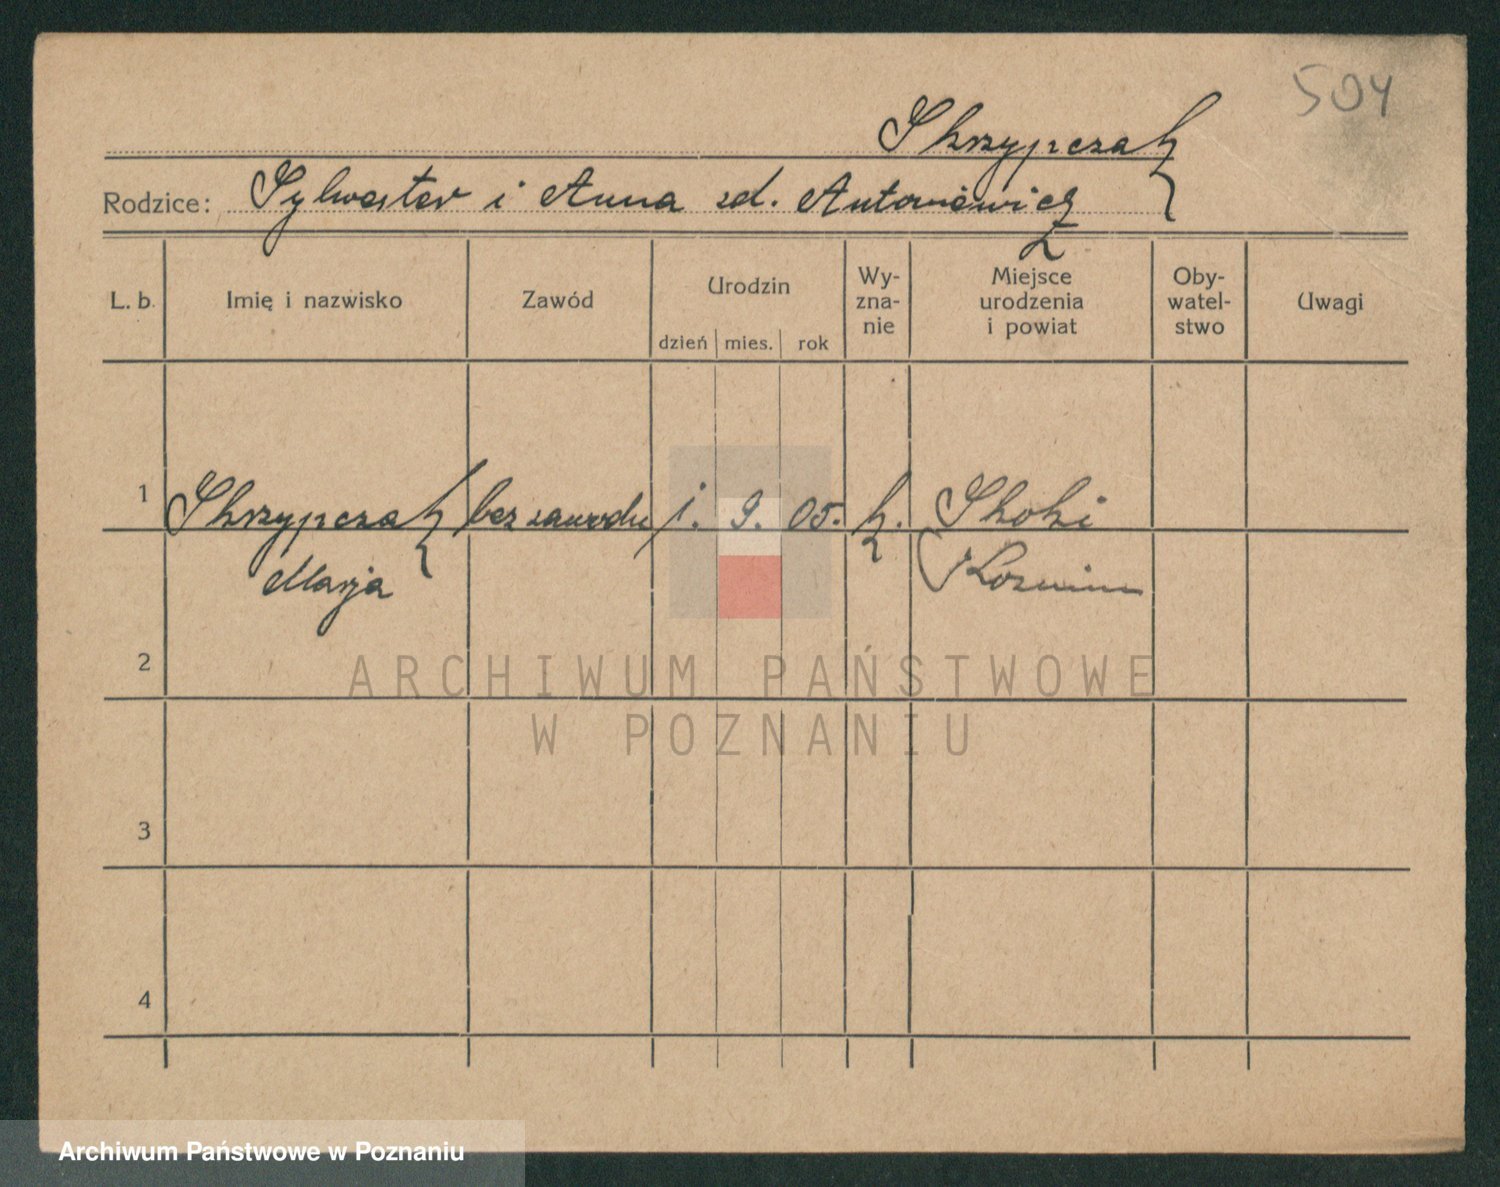 504
Skrzypczak
Rodzice: Sylwester i Anna zd. Antoniewicz
L. b. Imię i nazwisko Zawód Urodzin dzień mies. rok Wy-zna-nie Miejsce urodzenia i powiat Oby-watel-stwo Uwagi
1 Skrzypczak bez zawodu 1. 9. 05. k. Skoki
Marja
2
3
4
ARCHIWUM PAŃSTWOWE
W POZNANIU
Archiwum Państwowe w Poznaniu